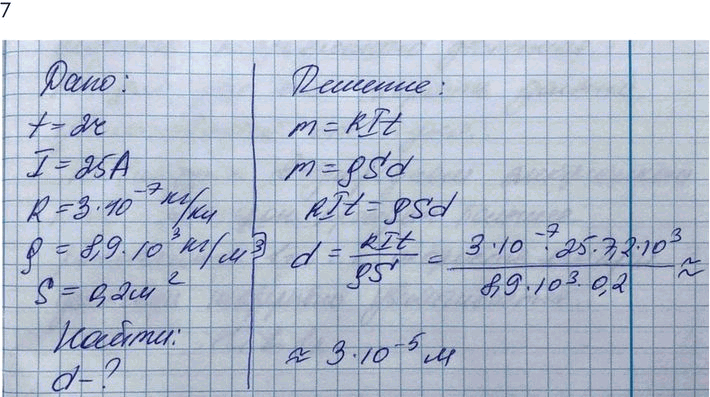 7
Дано:
t = 2ч
I = 25А
k = 3·10⁻⁷ кг/Кл
ρ = 8,9·10³ кг/м³
S = 0,2м²
Найти:
d - ?
Решение:
m = kIt
m = ρSd
kIt = ρSd
d = kIt/ρS = 3·10⁻⁷·25·7,2·10³/8,9·10³·0,2 ≈
≈ 3·10⁻⁵ м